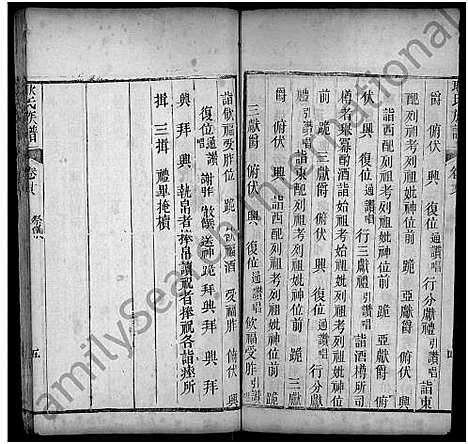 伏 興 復位 通贊唱 行分獻禮 引贊唱 詣東
配列祖考列祖妣神位前 跪 亞獻爵 俯
伏 興 詣西配列祖考列祖妣神位前 跪 亞獻爵 俯伏
興 復位 通贊唱 行三獻禮 引贊唱 詣酒樽所 司
樽者舉冪酌酒 詣始祖考始祖妣神位
前 跪 三獻爵 俯伏 興 復位 通贊唱 行分獻
禮 引贊唱 詣東配列祖考列祖妣神位前 跪 三獻
爵 俯伏 興 詣西配列祖考列祖妣神位前 跪
三獻爵 俯伏 興 復位 通贊唱 飲福受胙 引贊唱
詣飲福受胙位 跪 飲福酒 受福胙 俯伏 興
復位 通贊唱 謝胙 徹饌 送神 跪 拜 興 拜
興 拜 興 執帛者捧帛 讀祝者捧祝 各詣瘞所
揖 三揖 禮畢 掩櫝
氏族譜
祭儀
五
FamilySearch International